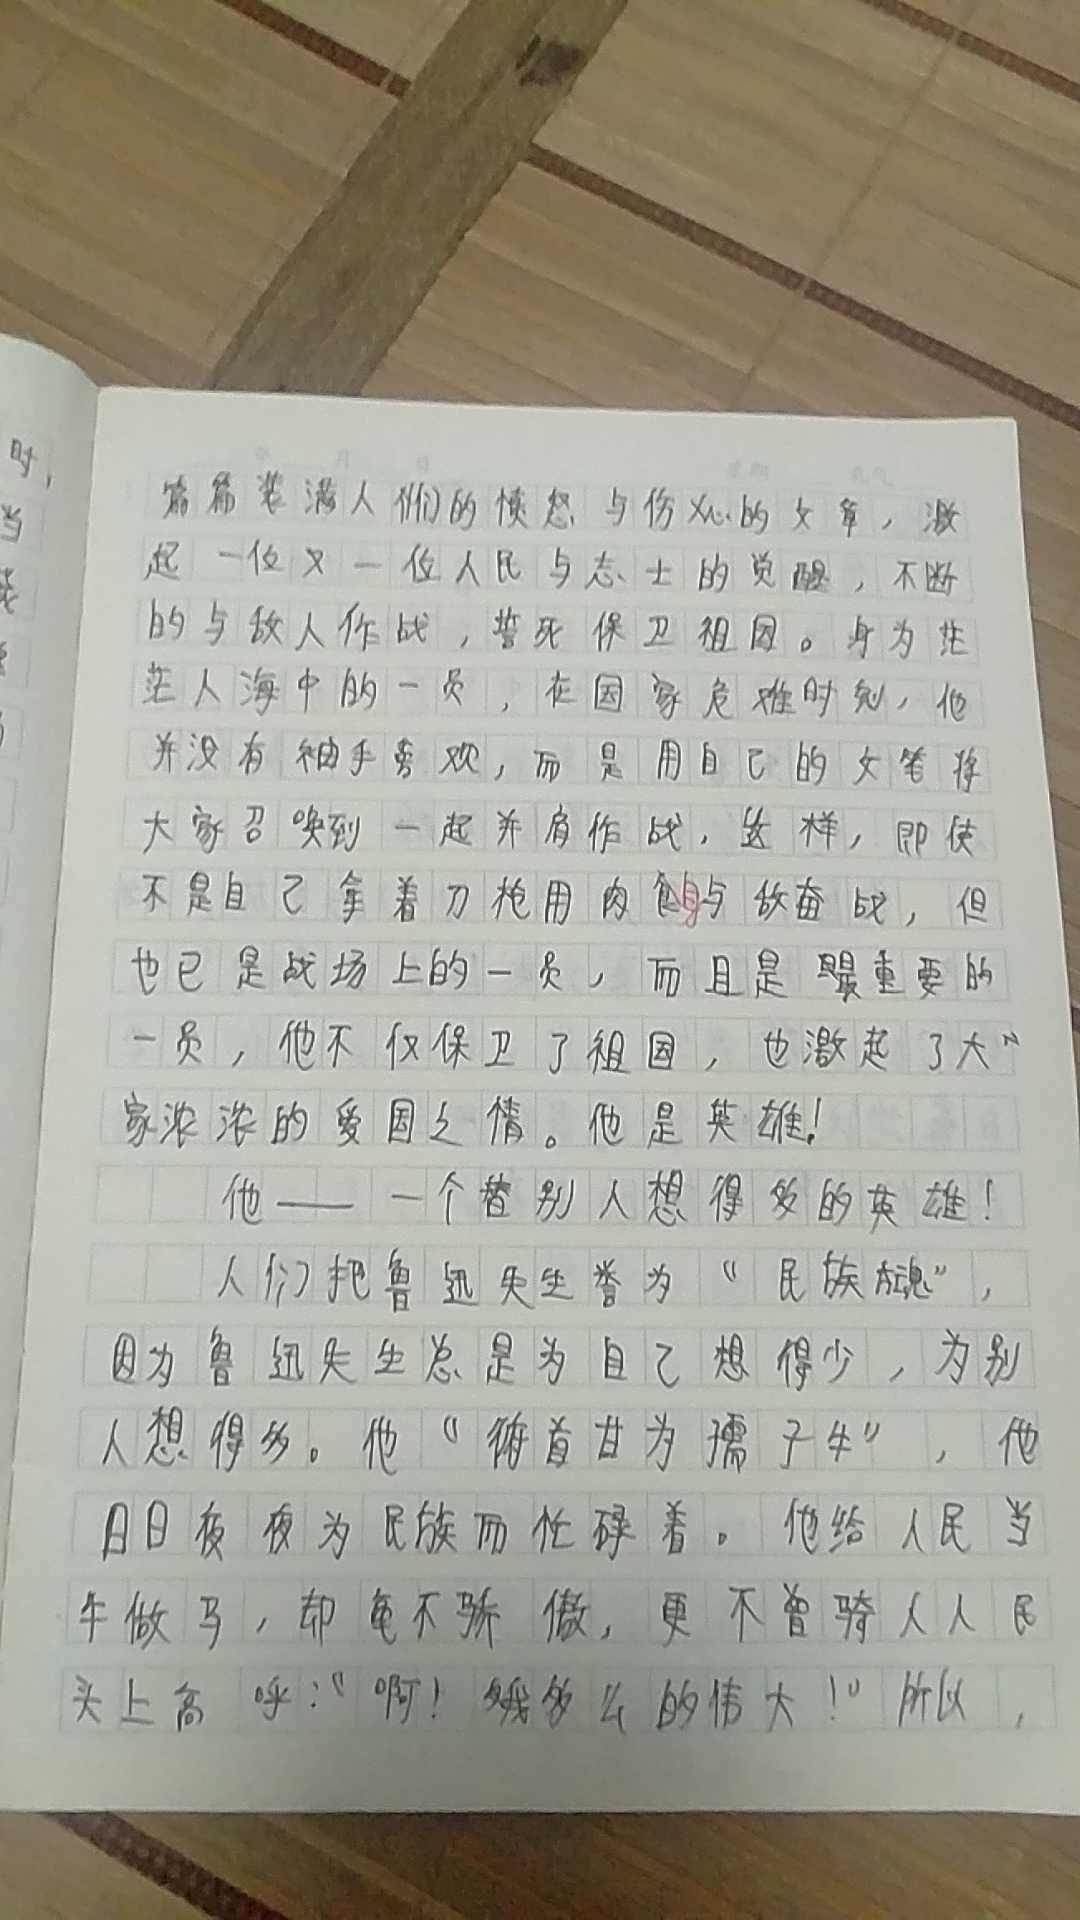 时,
当
篇篇装满人们的愤怒与伤心的文章,激
起一位又一位人民与志士的觉醒,不断
的与敌人作战,誓死保卫祖国。身为茫
茫人海中的一员,在国家危难时刻,他
并没有袖手旁观,而是用自己的文笔将
大家召唤到一起并肩作战,这样,即使
不是自己拿着刀枪用肉身与敌奋战,但
也已是战场上的一员,而且是最重要的
一员,他不仅保卫了祖国,也激起了大
家浓浓的爱国之情。他是英雄!
他——一个替别人想得多的英雄!
人们把鲁迅先生誉为“民族魂”,
因为鲁迅先生总是为自己想得少,为别
人想得多。他“俯首甘为孺子牛”,他
日日夜夜为民族而忙碌着。他给人民当
牛做马,却毫不骄傲,更不曾骑人人民
头上高呼:“啊!我多么的伟大!”所以,